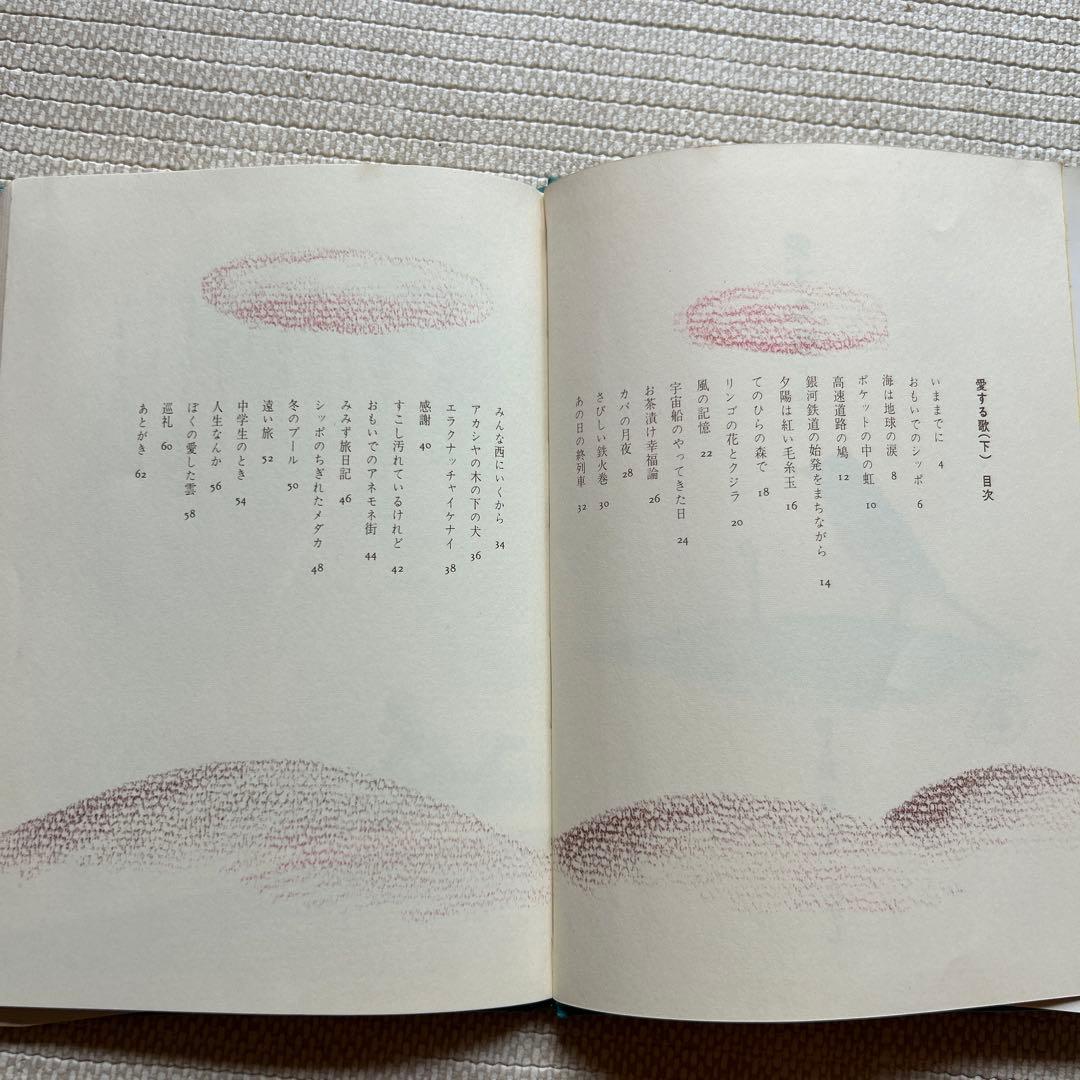 愛する歌(下) 目次
いままでに 4
おもいでのシッポ 6
海は地球の涙 8
ポケットの中の虹 10
高速道路の鳩 12
銀河鉄道の始発をまちながら 14
夕陽は紅い毛糸玉 16
てのひらの森で 18
リンゴの花とクジラ 20
風の記憶 22
宇宙船のやってきた日 24
お茶漬け幸福論 26
カバの月夜 28
さびしい鉄火巻 30
あの日の終列車 32
みんな西にいくから 34
アカシヤの木の下の犬 36
エラクナッチャイケナイ 38
感謝 40
すこし汚れているけれど 42
おもいでのアネモネ街 44
みみず旅日記 46
シッポのちぎれたメダカ 48
冬のプール 50
遠い旅 52
中学生のとき 54
人生なんか 56
ぼくの愛した雲 58
巡礼 60
あとがき 62